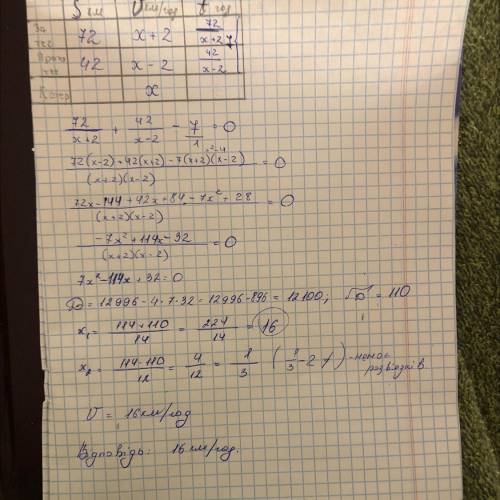 S км V км/год t год
За теч 72 x+2 72/(x+2)
42 x-2 42/(x-2) 7
x
72/(x+2) + 42/(x-2) - 7/1 = 0
(72(x-2)+42(x+2)-7(x+2)(x-2))/((x+2)(x-2)) = 0
(72x-144+42x+84-7x²+28)/((x+2)(x-2)) = 0
(-7x²+114x-32)/((x+2)(x-2)) = 0
7x²-114x+32=0
D=12996-4·7·32=12996-896=12100; √D=110
x₁ = (114+110)/14 = 224/14 = 16
x₂ = (114-110)/12 = 4/12 = 1/3 (1/3-2 ) -немає розв'язків
V = 16км/год
Відповідь: 16 км/год.